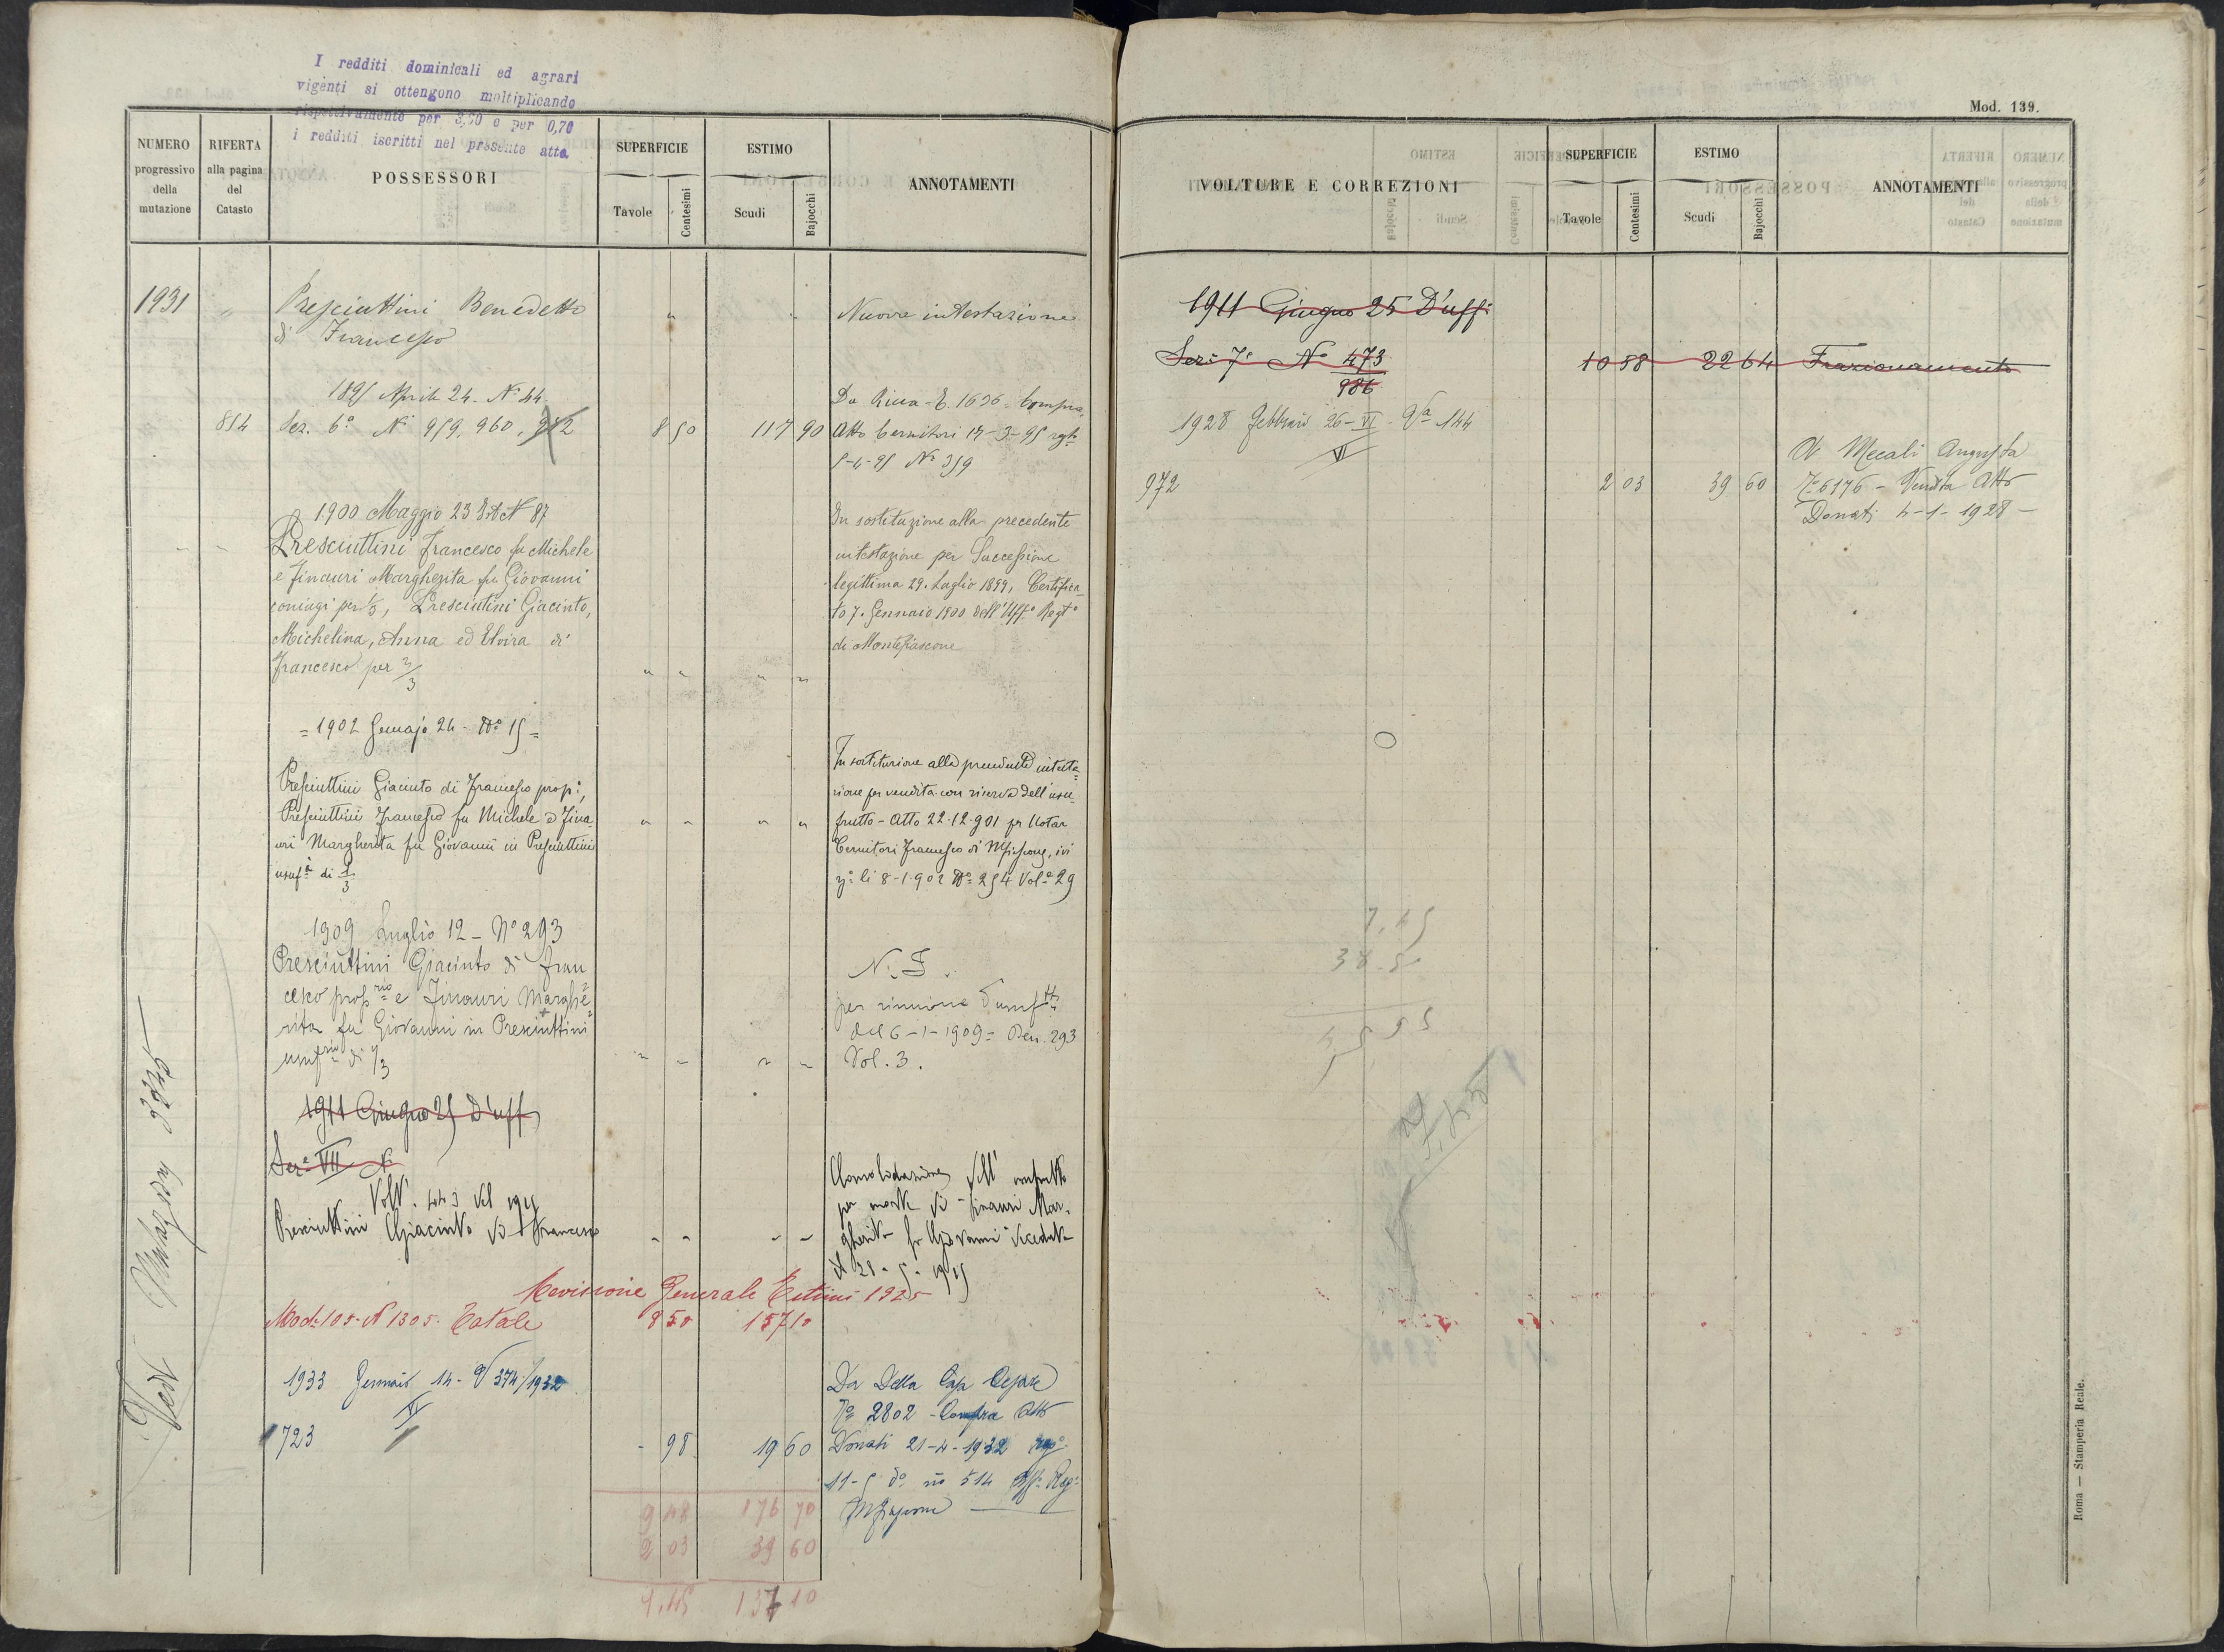 I redditi dominicali ed agrari
vigenti si ottengono moltiplicando
rispettivamente per 3,70 e per 0,70
i redditi iscritti nel presente atto
NUMERO progressivo della mutazione
RIFERTA alla pagina del Catasto
POSSESSORI
SUPERFICIE
Tavole
Centesimi
ESTIMO
Scudi
Bajocchi
ANNOTAMENTI
1931 " Presciuttini Benedetto " " Nuova intestazione
di Francesco
1895 Aprile 24. N° 44
854 Sez. 6ª Ni 959. 960. 972 8 50 117 90
Da Ricca E. 1696 Compra
Atto Cernitori 17-3-95 regto
5-4-95 N° 359
1900 Maggio 23 N 87
Presciuttini Francesco fu Michele
e Finauri Margherita fu Giovanni
coniugi per 1/3, Presciuttini Giacinto,
Michelina, Anna ed Elvira di
Francesco per 2/3 " " " "
In sostituzione alla precedente
intestazione per Successione
legittima 29. Luglio 1899, Certifica
to 7. Gennaio 1900 dell'Uffo Regto
di Montefiascone
= 1902 Gennajo 24 - No 15 =
Presciuttini Giacinto di Francesco propo,
Presciuttini Francesco fu Michele e Fina
uri Margherita fu Giovanni in Presciuttini
usufi di 1/3 " " " "
In sostituzione alla precedente intesta
zione per vendita con riserva dell'usu
frutto - Atto 22-12-901 per Notar
Cernitori Francesco di Mfiascone, ivi
ro li 8-1-902 No 254 Vol. 29
1909 Luglio 12 - No 293
Presciuttini Giacinto di Fran
cesco proprio e Finauri Marghe
rita fu Giovanni in Presciuttini
usufria di 1/3 " " " "
N. I.
per riunione d'usuftto
del 6-1-1909 = Den. 293
Vol. 3.
1911 Giugno 25 D'uff
Sez. VII N
Volt. 443 del 1915
Presciuttini Giacinto di Francesco " " " "
Consolidazione dell' usufrutto
per morte di Finauri Mar.
gherita fu Giovanni deceduta
il 28-5-1915
Revisione Generale Estimi 1925
Mod. 105. N 1305. Totale 8 50 157 10
1933 Gennaio 14 - V 374/1932
VI
723 - 98 19 60
Da Della Casa Cesare
No 2802 - Compra Atto
Donati 21-4-1932 rego
11-5 do no 514 Uffo Rego
Mfiascone
9 48 176 70
2 03 39 60
7.45 137 10
Vedi
3345
Mod. 139.
VOLTURE E CORREZIONI
SUPERFICIE
Tavole
Centesimi
ESTIMO
Scudi
Bajocchi
ANNOTAMENTI
1911 Giugno 25 D'uffi
Sez. 7ª No 473/986 10 58 22 64 Frazionamento
1928 Febbraio 26 - VI - Va 144
VI
972 2 03 39 60
A Mecali Augusta
No 6176 - Vendita Atto
Donati 4-1-1928 -
7,45
38.50
Roma — Stamperia Reale.